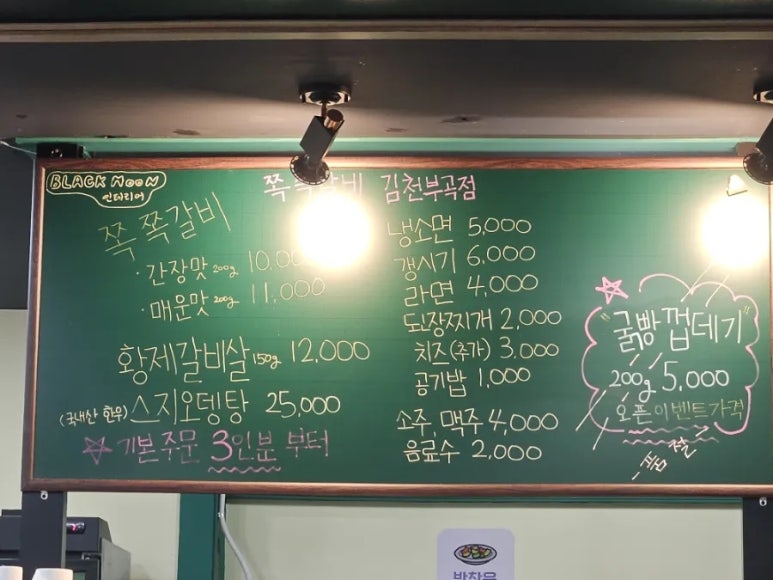 BLACK MOON
인테리어
쪽 갈비 김천부곡점
쪽쪽갈비
· 간장맛 200g 10,000
· 매운맛 200g 11,000
황제갈비살 150g 12,000
(국내산 한우) 스지오뎅탕 25,000
☆ 기본주문 3인분 부터
냉소면 5,000
갱시기 6,000
라면 4,000
된장찌개 2,000
치즈(추가) 3,000
공기밥 1,000
소주, 맥주 4,000
음료수 2,000
☆
"굵빵껍데기"
200g 5,000
오픈이벤트가격